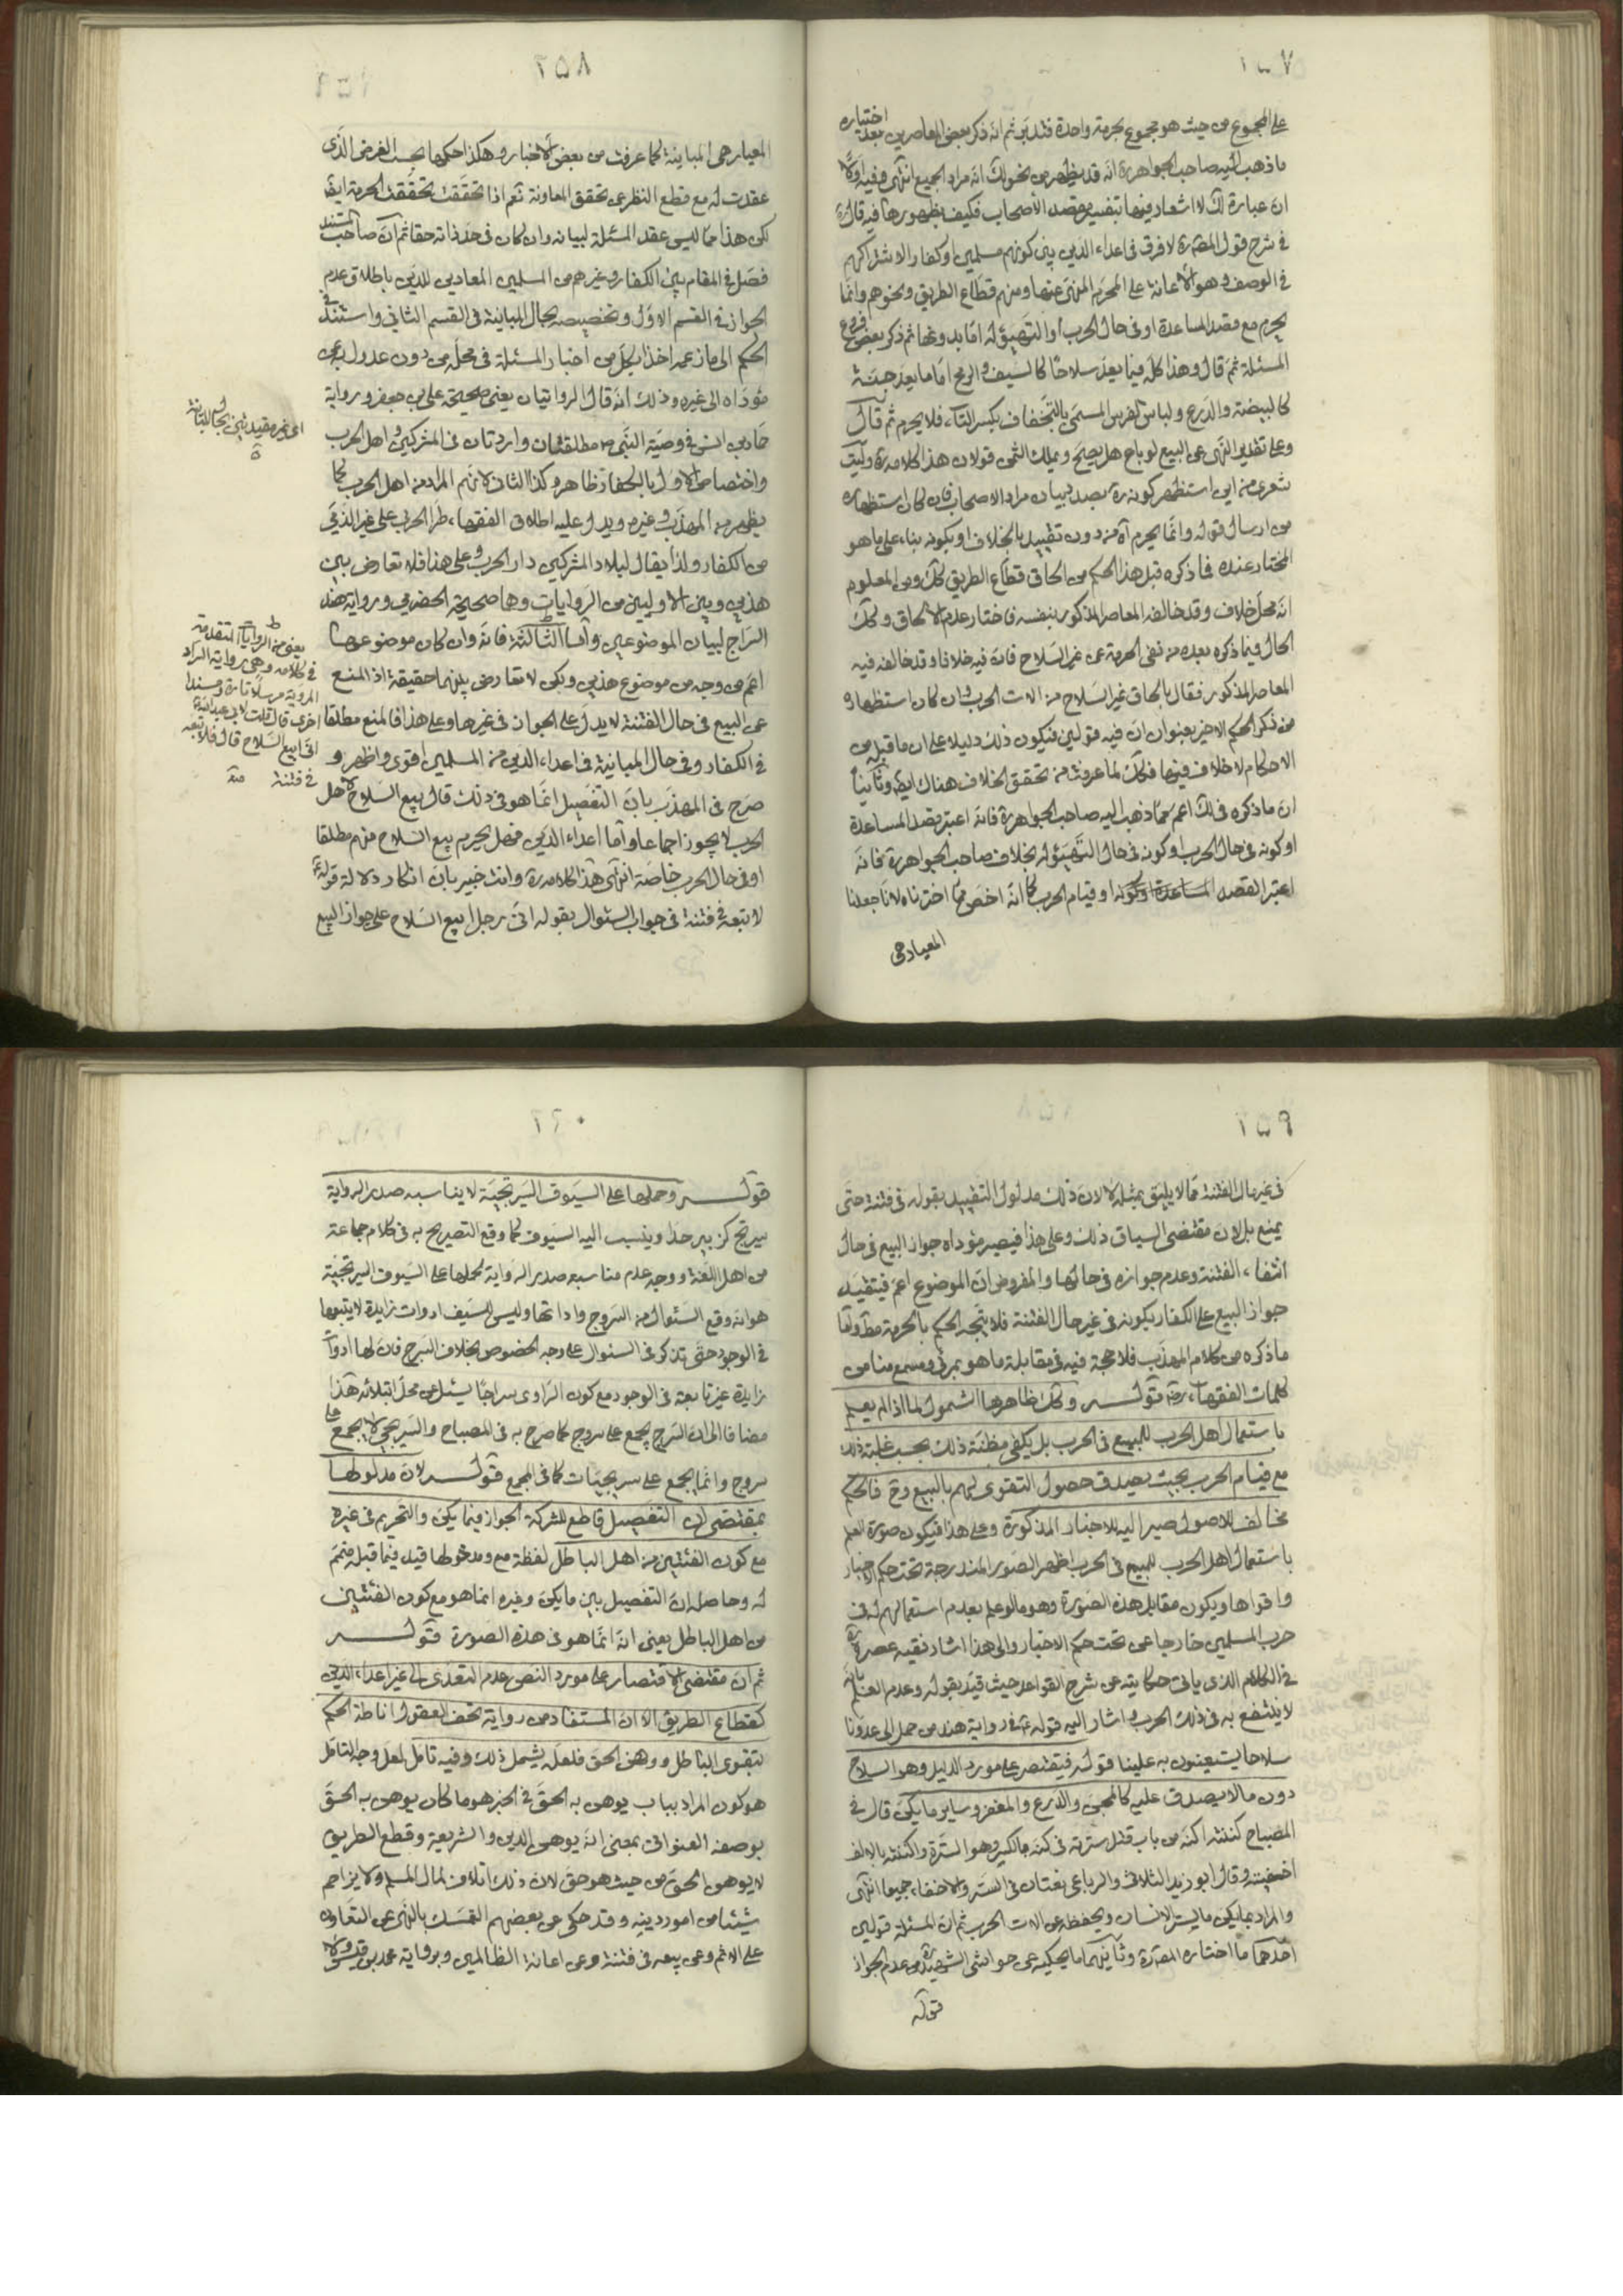 ٢٥٧
على المجموع من حيث هو مجموع بحرمة واحدة فتدبر ثم انه ذكر بعض المعاصرين بعد اختياره
ما ذهب اليه صاحب الجواهر ره انه قد يظهر من نحو لك انه مراد الجميع انتهى وفيه اولا
ان عبارة لك لا اشعار فيها بتفسير مقصد الأصحاب فكيف بظهورها فيه قال ره
في شرح قول المصنف ره لا فرق في اعداء الدين بين كونهم مسلمين او كفارا لاشتراكهم
في الوصف وهو الاعانة على المحرم المنهى عنها ومنهم قطاع الطريق ونحوهم وانما
يحرم مع قصد المساعدة او في حال الحرب أو التهيؤ له اما بدونها ثم ذكر بعض فروع
المسئلة ثم قال وهذا كله فيما يعد سلاحا كالسيف والرمح اما ما يعد جنة
كالبيضة والدرع ولباس الفرس المسمى بالتجفاف بكسر التاء فلا يحرم ثم قال
وعلى تقدير النهى عن البيع لو باع هل يصح ويملك الثمن قولان هذا كلامه ره وليت
شعرى من اين استظهر كونه ره بصدد بيان مراد الاصحاب فان كان استظهاره
من ارسال قوله وانما يحرم آه من دون تقييد بالخلاف او بكونه بناء على ما هو
المختار عنده فما ذكره قبل هذا الحكم من الحاق قطاع الطريق كك ومن المعلوم
انه محل خلاف وقد خالفه المعاصر المذكور بنفسه فاختار عدم الالحاق وكك
الحال فيما ذكره بعده من نفى الحرمة عن غير السلاح فان فيه خلافا وقد خالفه فيه
المعاصر المذكور فقال بالحاق غير السلاح من الات الحرب وان كان استظهاره
من ذكر الحكم الاخير بعنوان ان فيه قولين فيكون ذلك دليلا على ان ما قبل من
الاحكام لا خلاف فيها فكك لما عرفت من تحقق الخلاف هناك ايضا وثانيا
ان ما ذكره في لك اعم مما ذهب اليه صاحب الجواهر ره فانه اعتبر قصد المساعدة
او كونه في حال الحرب او كونه في حال التهيؤ له بخلاف صاحب الجواهر ره فانه
اعتبر القصد المساعدة او كونه او قيام الحرب كما انه اخص مما اخترناه لانا جعلنا
المعيار هى
٢٥٨
المعيار هى المباينة كما عرفت من بعض الأخبار وهكذا حكمها بحسب الغرض الذى
عقدت له مع قطع النظر عن تحقق المعاونة نعم اذا تحققت تحققت الحرمة ايضا
لكن هذا مما ليس عقد المسئلة لبيانه وان كان في حد ذاته حقا ثم ان صاحب المستند
فصل في المقام بين الكفار وغيرهم من المسلمين المعادين للدين باطلاق عدم
الجواز في القسم الاول وتخصيصه بحال المباينة في القسم الثاني واستند في
الحكم الى ما زعمه اخذا بكل من اخبار المسئلة في محله من دون عدول عن
مؤداه الى غيره وذلك انه قال الروايتان يعنى صحيحة على بن جعفر ورواية
حماد بن انس في وصية النبى ص مطلقتان واردتان في المشركين و اهل الحرب
واختصاص الاول بالكفار ظاهر وكذا الثاني لانهم المراد من اهل الحرب كما
يظهر من المهذب وغيره ويدل عليه اطلاق الفقهاء طرا الحربى على غير الذمى
من الكفار ولذا يقال لبلاد المشركين دار الحرب وعلى هذا فلا تعارض بين
هذين وبين الاوليين من الروايات وهما صحيحة الحضرمي ورواية هند
السراج لبيان الموضوعين واما الثالثة فانه وان كان موضوعها
اعم من وجه من موضوع هذين ولكن لا تعارض بينهما حقيقة اذ المنع
عن البيع في حال الفتنة لا يدل على الجواز في غيرها وعلى هذا فالمنع مطلقا
في الكفار وفي حال المباينة في اعداء الدين من المسلمين اقوى واظهر و
صرح في المهذب بان التفصيل انما هو في ذلك قال بيع السلاح لاهل
الحرب لا يجوز اجماعا واما اعداء الدين فهل يحرم بيع السلاح منهم مطلقا
او في حال الحرب خاصة انتهى هذا كلامه ره وانت خبير بان انكار دلالة قوله ع
لا تبعه في فتنة في جواب السئوال بقوله انى رجل ابيع السلاح على جواز البيع
اى غير مقيدتين بحال المباينة
يعنى من الروايات المتقدمة
في كلامه وهى رواية السراد
المروية مرسلا تارة ومسندا
اخرى قال قلت لابى عبد الله ع
انى ابيع السلاح قال فلا تبعه
في فتنة منه
٢٥٩
في غير حال الفتنة مما لا يليق بمثله لا لان ذلك مدلول التقييد بقوله في فتنة حتى
يمنع بل لان مقتضى السياق ذلك وعلى هذا فيصير مؤداه جواز البيع في حال
انتفاء الفتنة وعدم جوازه في حالها والمفروض ان الموضوع اعم فيتقيد
جواز البيع على الكفار بكونه في غير حال الفتنة فلا يتجه الحكم بالحرمة مطلقا واما
ما ذكره من كلام المهذب فلا حجة فيه في مقابلة ما هو بمرئى ومسمع منا من
كلمات الفقهاء رض قوله وكك ظاهرها الشمول لما اذا لم يعلم
باستعمال اهل الحرب للمبيع في الحرب بل يكفى مظنة ذلك بحسب غلبة ذلك
مع قيام الحرب بحيث يصدق حصول التقوى لهم بالبيع وح فالحكم
مخالف للاصول صير اليه للاخبار المذكورة وعلى هذا فيكون صورة العلم
باستعمال اهل الحرب للمبيع في الحرب اظهر الصور المندرجة تحت حكم الاخبار
واقواها ويكون مقابل هذه الصورة وهو ما لو علم بعدم استعمالهم له في
حرب المسلمين خارجا عن تحت حكم الاخبار والى هذا اشار فقيه عصره ره
في الكلام الذى ياتى حكايته عن شرح القواعد حيث قيد بقوله وعدم العلم بانه
لا ينتفع به في ذلك الحرب واشار اليه قوله ع في رواية هند من حمل الى عدونا
سلاحا يستعينون به علينا قوله فيقتصر على مورد الدليل وهو السلاح
دون ما لا يصدق عليه كالمجن والدرع والمغفر وساير ما يكن قال في
المصباح كننته اكنه من باب قتل سترته في كنه بالكسر وهو السترة واكننته بالالف
اخفيته وقال ابو زيد الثلاثى والرباعى لغتان في الستر والاخفاء جميعا انتهى
والمراد بما يكن ما يستر الانسان ويحفظه من الات الحرب ثم ان المسئلة قولين
احدهما ما اختاره المصنف ره وثانيهما ما يحكيه عن حواشى الشهيد ره من عدم الجواز
قوله
٢٦٠
قوله وحملها على السيوف السريجية لا يناسبه صدر الرواية
سريج كزبير حداد ينسب اليه السيوف كما وقع التصريح به في كلام جماعة
من اهل اللغة ووجه عدم مناسبه صدر الرواية لحملها على السيوف السريجية
هو انه وقع السئوال من السروج واداتها وليس للسيف ادوات زايدة لا يتبعها
في الوجود حتى تذكر في السئوال على وجه الخصوص بخلاف السرج فان لها ادواتا
زايدة غير تابعة في الوجود مع كون الراوى سراجا يسئل عن محل ابتلائه هذا
مضافا الى ان السرج يجمع على سروج كما صرح به في المصباح والسريجى لا يجمع على
سروج وانما يجمع على سريجيات كما في المجمع قوله لان مدلولها
بمقتضى ان التفصيل قاطع للشركة الجواز فيما يكن والتحريم في غيره
مع كون الفئتين من اهل الباطل لفظة مع ومدخولها قيد فيما قبله متمم
له وحاصله ان التفصيل بين ما يكن وغيره انما هو مع كون الفئتين
من اهل الباطل يعنى انه انما هو في هذه الصورة قوله
ثم ان مقتضى الاقتصار على مورد النص عدم التعدى الى غير اعداء الدين
كقطاع الطريق الا ان المستفاد من رواية تحف العقول اناطة الحكم
بتقوى الباطل ووهن الحق فلعله يشمل ذلك وفيه تامل لعل وجه التامل
هو كون المراد بباب يوهن به الحق في الخبر هو ما كان يوهن به الحق
بوصفه العنوانى بمعنى انه يوهن الدين والشريعة وقطع الطريق
لا يوهن الحق من حيث هو حق لان ذلك اتلاف لمال المسلم ولا يزاحم
شيئا من امور دينه وقد حكى عن بعضهم التمسك بالنهى عن التعاون
على الاثم وعن بيعه في فتنة وعن اعانة الظالمين وبرواية محمد بن قيس